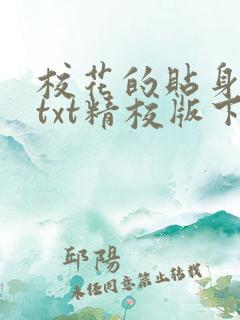 校花的贴身
txt精校版下
邱陽
未经同意禁止转载